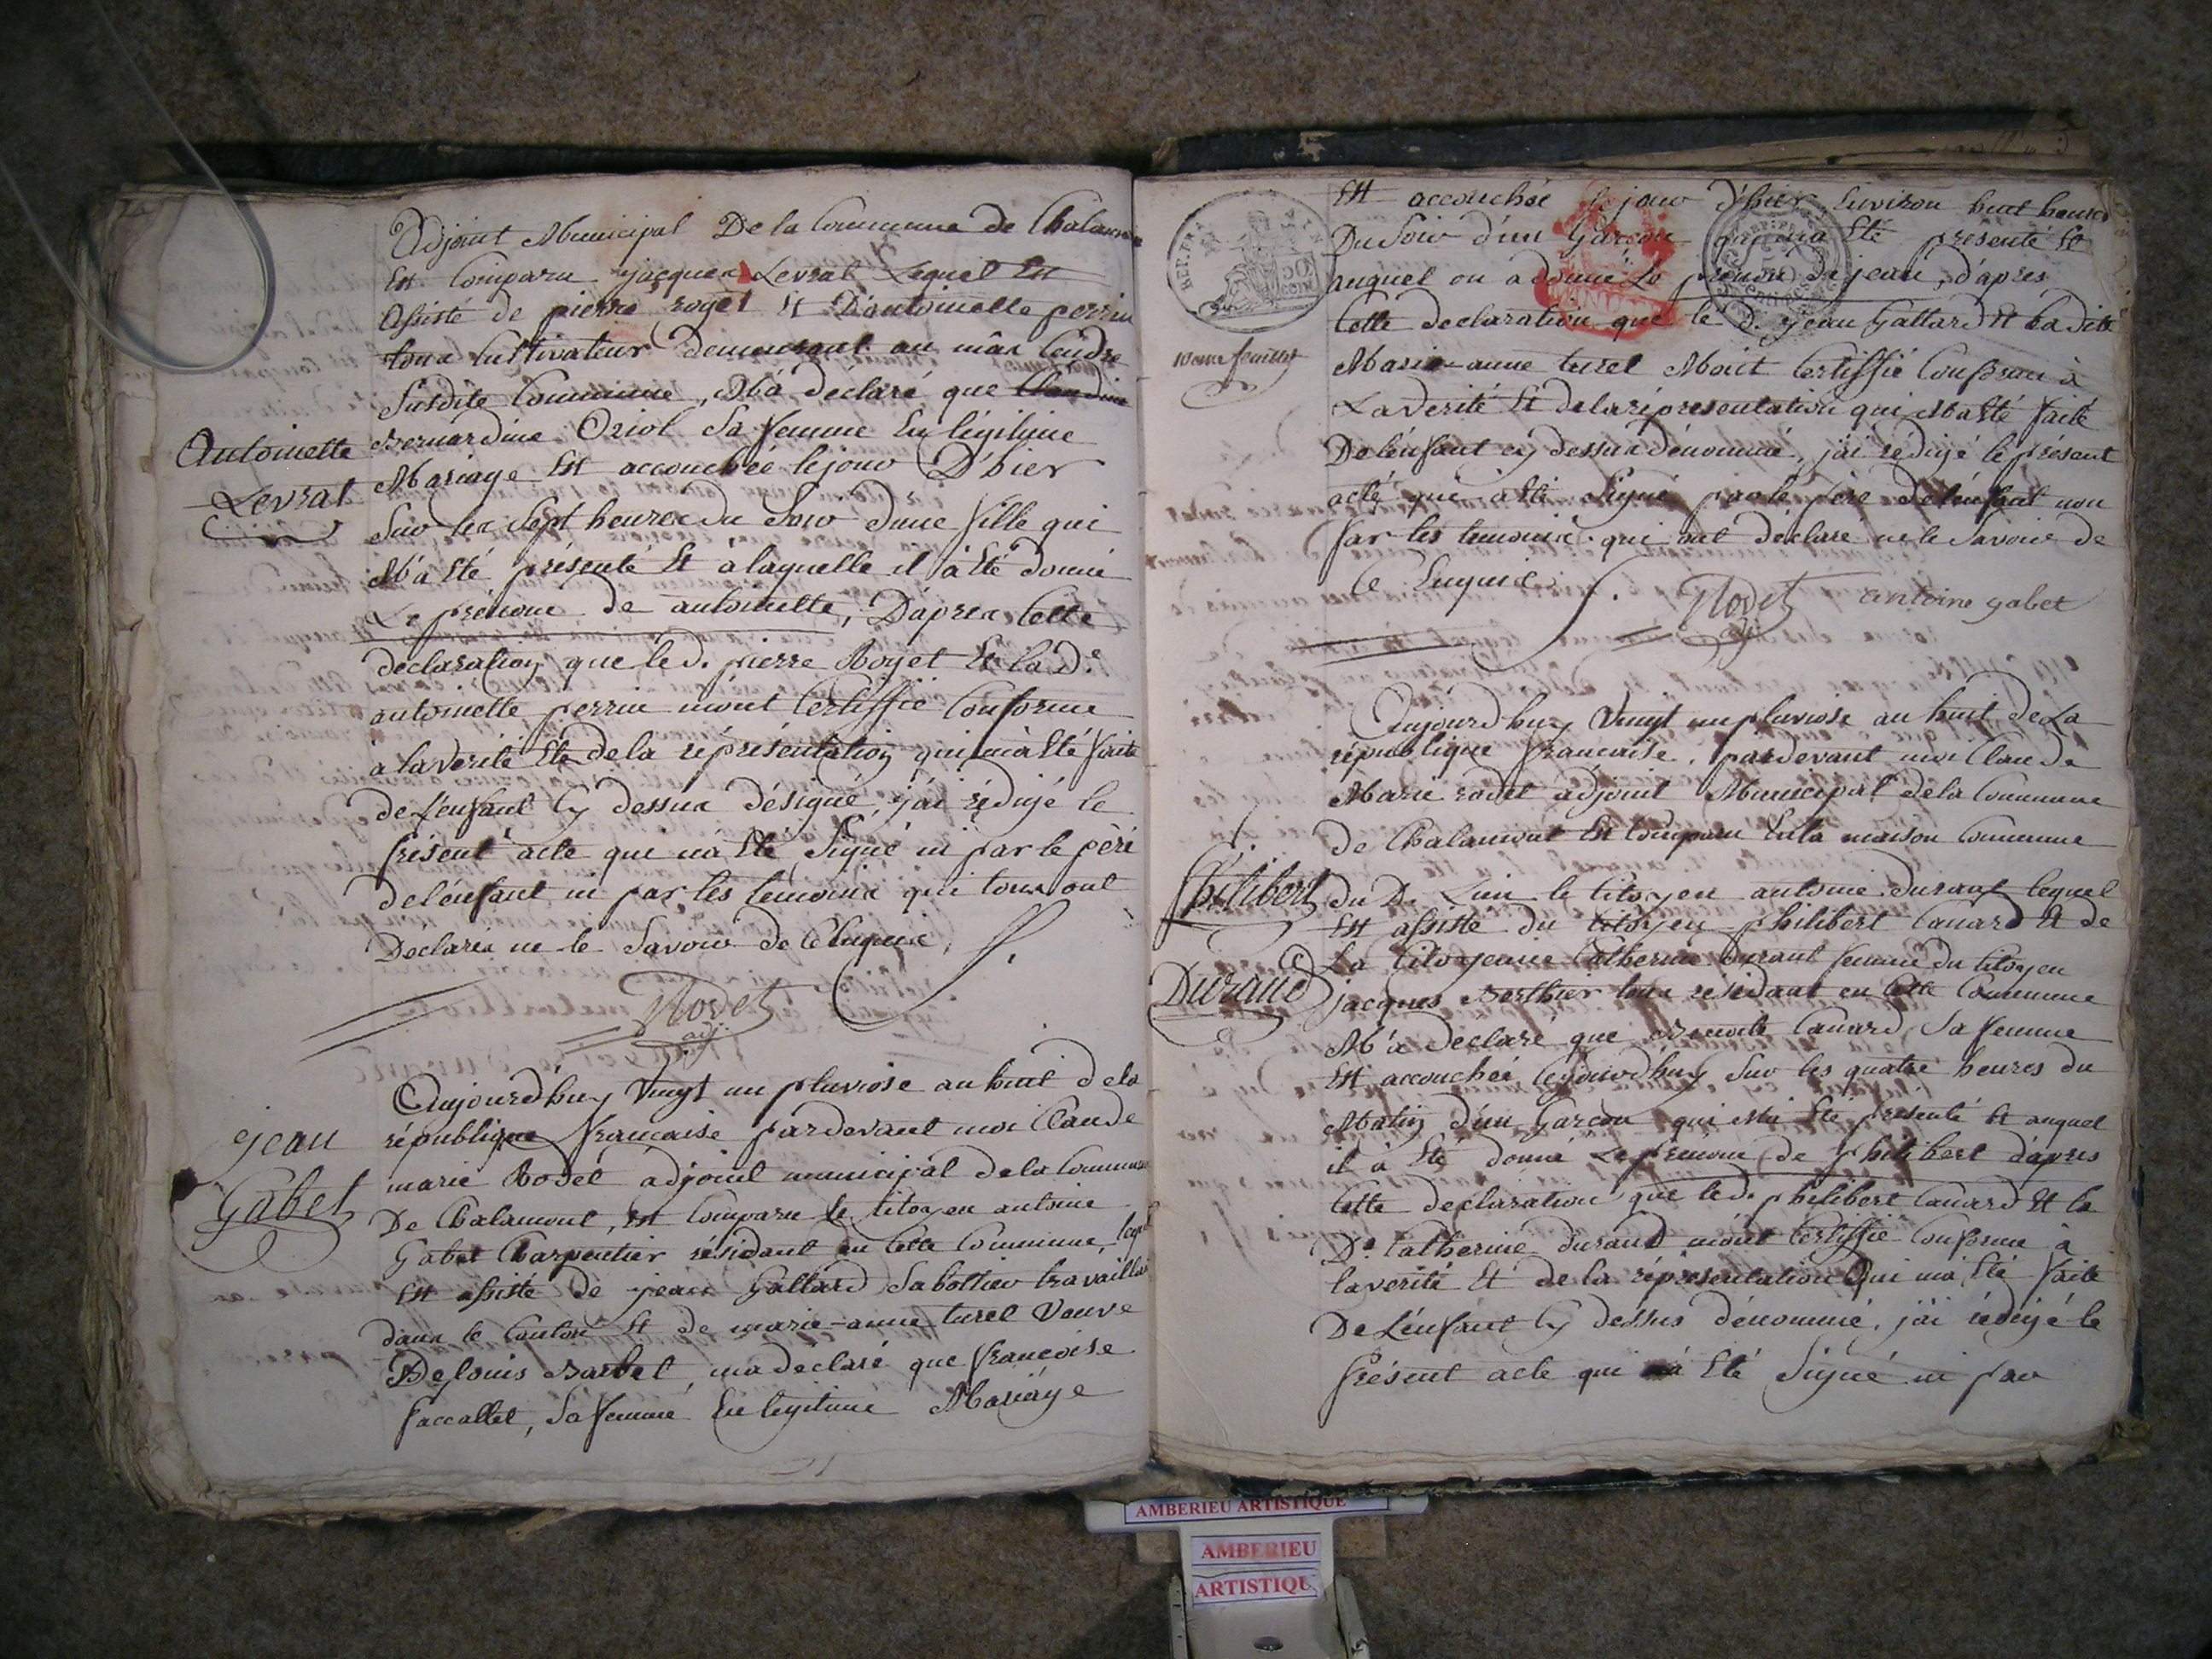 Adjoint Municipal De la Commune de Chalamont
Est Comparu jacques Levrat Lequel Est
Assisté de pierre royet Et D'antoinette perrin
tous Cultivateur Demeurant au mâs
Susdite Commune, M'à déclaré que Claudine
Antoinette
Levrat
Bernardine Oriol Sa femme En légitime
Mariage Est accouchée le jour D'hier
Sur les Sept heures du Soir d'une fille qui
M'à Eté présenté Et à laquelle il à Eté donné
Le prénom de antoinette, D'apres Cette
declaration que le d. pierre Royet Et la De
antoinette perrin m'ont Certiffié Conforme
à la verité Et de la représentation qui m'à Eté faite
de L'enfant Cy dessus désigné, j'ai rédigé le
présent acte qui n'à Eté Signé ni par le père
de l'enfant ni par les témoins qui tous ont
Déclarés ne le Savoir de Ce Enquis
Rodet
adj.
jean
Gabet
Aujourd'huy Vingt un pluviose an huit de la
république francaise pardevant moi Claude
marie Rodet adjoint municipal de la Commune
De Chalamont, Est Comparu le Citoyen antoine
Gabet Charpentier résidant en Cette Commune, lequel
Est assisté de jean Gallard Sabottier travaillant
dans le Canton Et de marie-anne turel Veuve
De louis Barbet, m'a déclaré que francoise
faccallet, Sa femme En legitime Mariage
Est accouchée le jour d'hier Environ huit heures
Du Soir d'un Garcon qui m'a Eté présenté Et
auquel on a donné Le prénom de jean, d'apres
Cette declaration que le d. jean Gallard Et la dite
10eme feuillet
Marie-anne turel M'ont Certiffié Conforme à
La Verité Et de la réprésentation qui M'a Eté faite
De l'enfant cy dessus dénommé, j'ai rédigé le présent
acte qui a Eté Signé par le père de l'enfant non
par les temoins qui ont déclaré ne le Savoir de
Ce Enquis
Rodet antoine gabet
Aujourd'huy Vingt un pluviose an huit de La
république francaise, pardevant moi Claude
Marie rodet adjoint Municipal de la Commune
de Chalamont Est Comparu En la maison Commune
Philibert
Durand
du D. Lieu le Citoyen antoine durand lequel
Est assisté du Citoyen philibert Canard Et de
La Citoyenne Catherine Durand femme du Citoyen
jacques Berthier tous résidant en Cette Commune
M'à Declaré que Benoite Canard Sa femme
Est accouchée Cejourd'huy Sur les quatre heures du
Matin d'un Garcon qui m'a Eté présenté Et auquel
il à Eté donné Le prénom de philibert d'apres
Cette declaration que le d. philibert Canard Et la
De Catherine durand m'ont Certiffié Conforme à
la verité Et de la réprésentation Qui m'a Eté faite
De L'enfant Cy dessus dénommé, j'ai rédigé le
présent acte qui n'à Eté Signé ni par
AMBERIEU ARTISTIQUE
AMBERIEU
ARTISTIQU